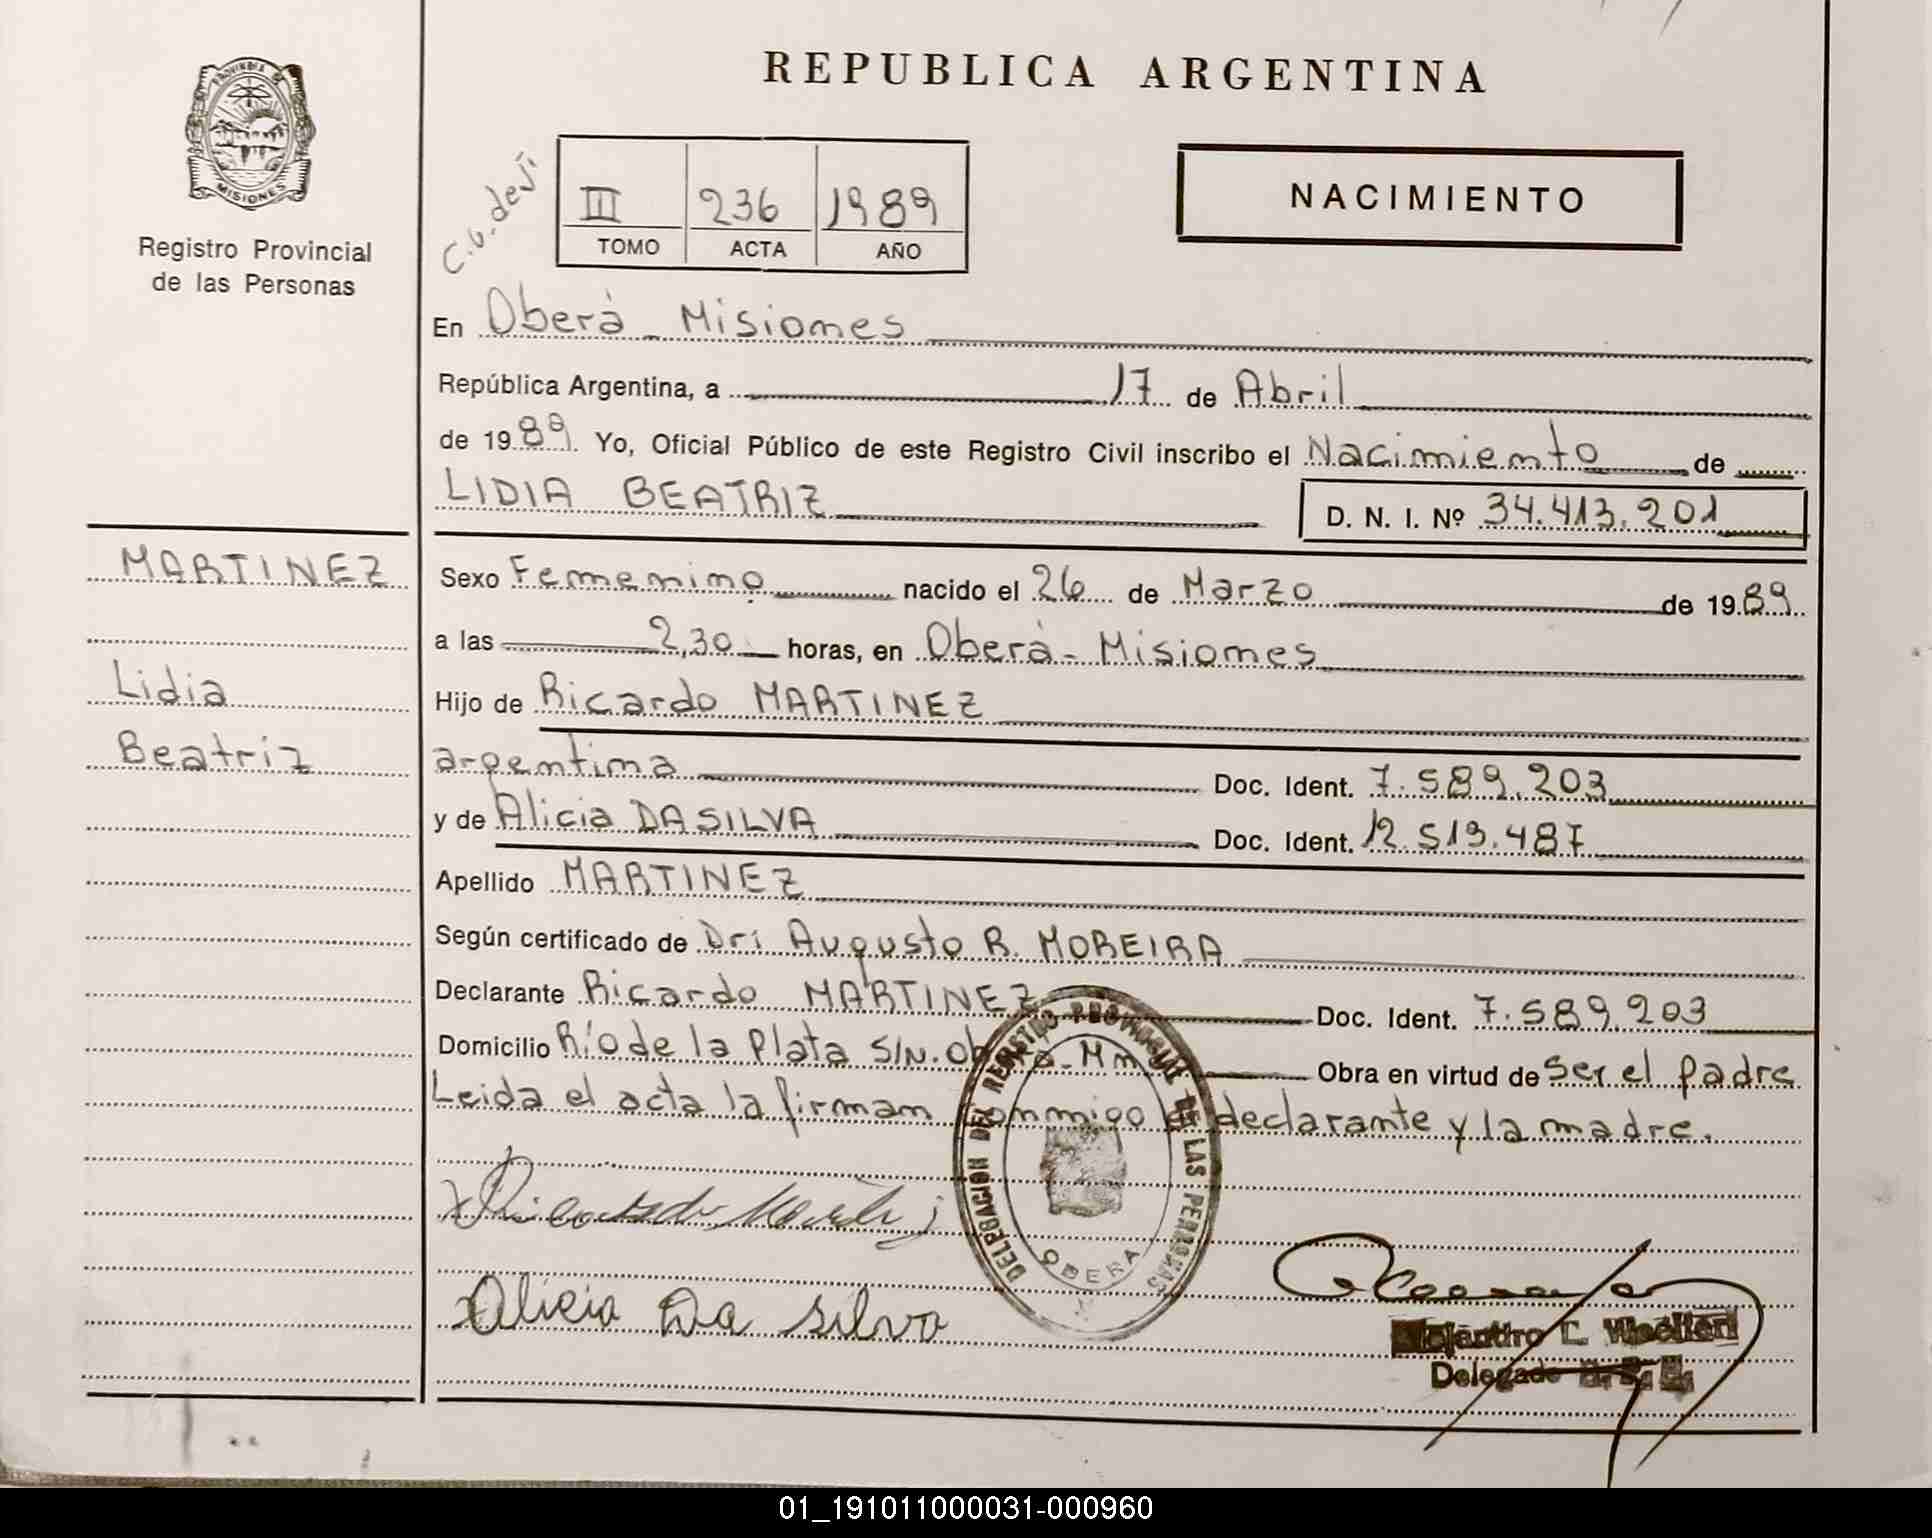 REPUBLICA ARGENTINA
PROVINCIA DE
MISIONES
Registro Provincial
de las Personas
III 236 1989
TOMO ACTA AÑO
NACIMIENTO
En Oberá - Misiones
República Argentina, a 17 de Abril
de 1989. Yo, Oficial Público de este Registro Civil inscribo el Nacimiento de
LIDIA BEATRIZ D. N. I. Nº 34.413.201
MARTINEZ
Lidia
Beatriz
Sexo Femenino nacido el 26 de Marzo de 1989
a las 2,30 horas, en Oberá - Misiones
Hijo de Ricardo MARTINEZ
argentina Doc. Ident. 7.589.203
y de Alicia DASILVA Doc. Ident. 12.513.487
Apellido MARTINEZ
Según certificado de Dr: Augusto R. MOREIRA
Declarante Ricardo MARTINEZ Doc. Ident. 7.589.203
Domicilio Río de la Plata S/N. Oberá - Mnes Obra en virtud de ser el padre
Leida el acta la firman conmigo el declarante y la madre.
DELEGACION DEL REGISTRO PROVINCIAL DE LAS PERSONAS
OBERA
Alicia Da Silva
Delegado
01_191011000031-000960